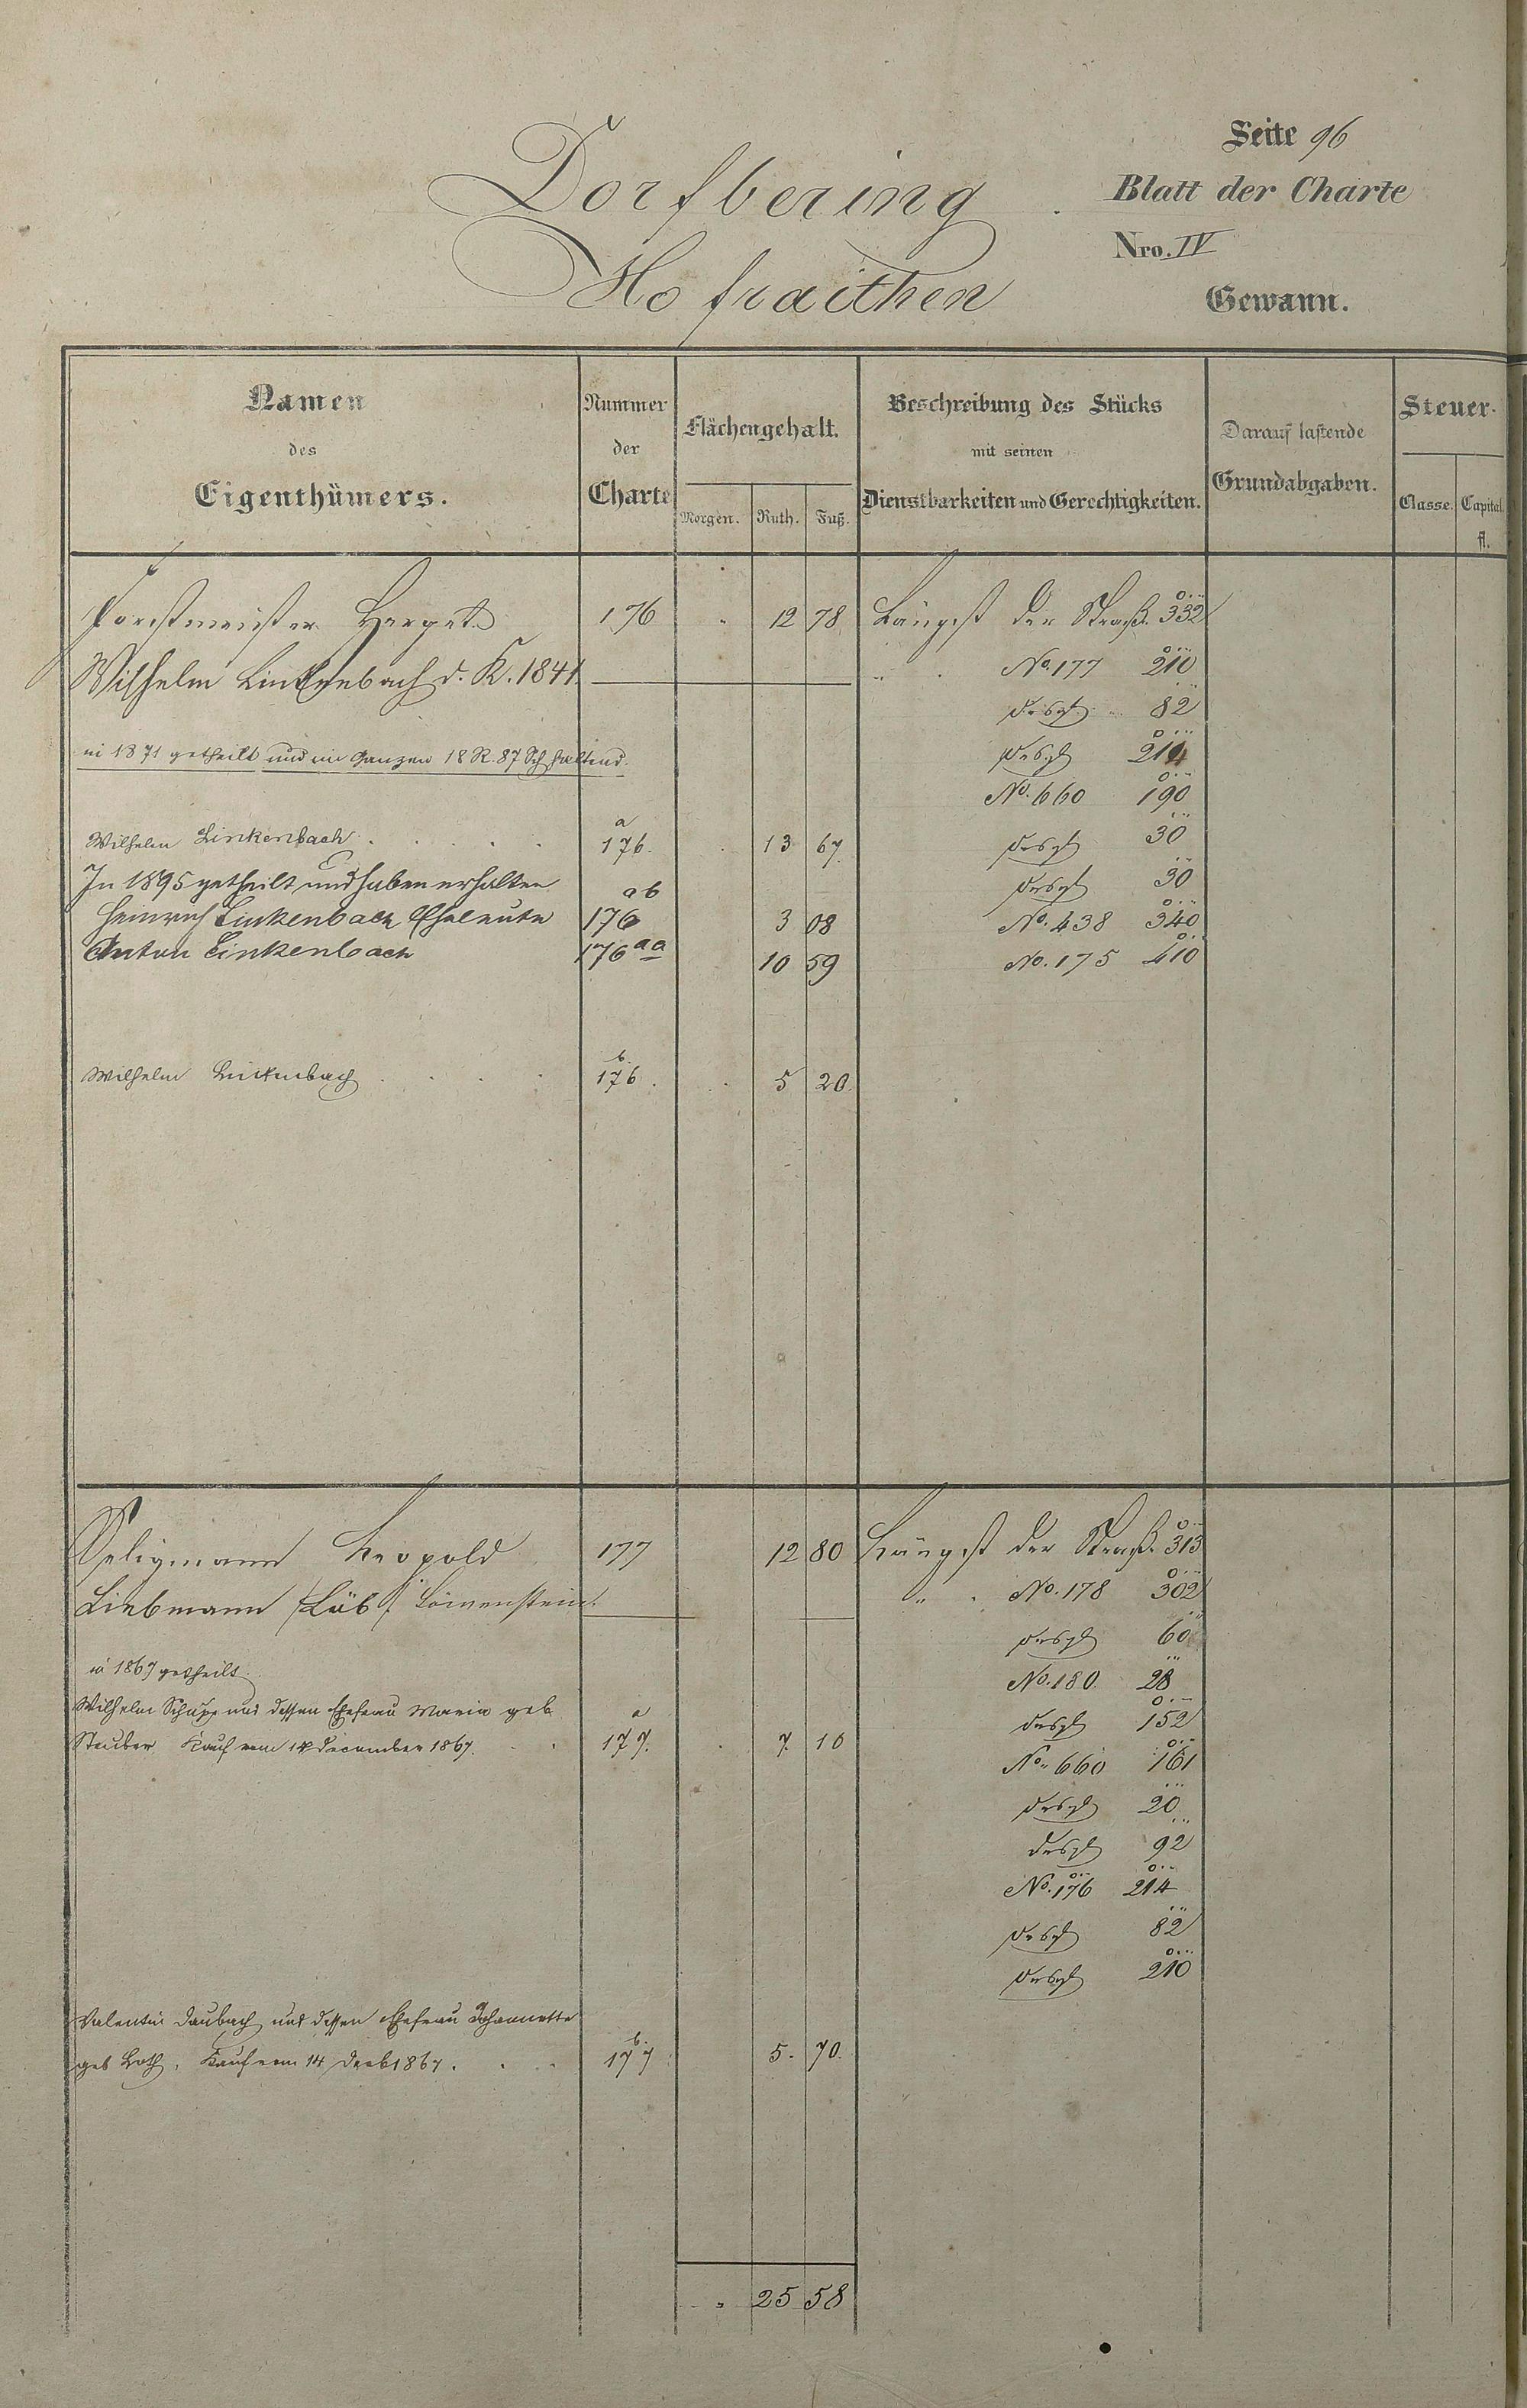 Seite 96
Dorfbering
Blatt der Charte
Nro. IV
Hofraithen
Gewann.
Namen des Eigenthümers.
Nummer der Charte
Flächengehalt.
Morgen. Ruth. Fuß.
Beschreibung des Stücks mit seinen Dienstbarkeiten und Gerechtigkeiten.
Darauf lastende Grundabgaben.
Steuer-
Classe. Capital. fl.
Forstmeister Herget 176 " 12 78 Längst der Straß. 332
Wilhelm Linkenbach d. K. 1841. " . No. 177 210
desgl 82
in 1871 getheilt und im Ganzen 18 R. 87 Sch haltend. desgl 214
No. 660 190
Wilhelm Linkenbach . . . . . 176 a . 13 67 desgl 30
In 1895 getheilt und haben erhalten desgl 30
Heinrich Linkenbach Eheleute 176 ab 3 08 No. 438 340
Anton Linkenbach 176 aa 10 59 No. 175 410
Wilhelm Linkenbach . . . . 176 b. 5 20.
Seligmann Leopold 177 12 80 Längst der Straß. 313
Liebmann /Löb/. Löwenstein. " . No. 178 302
desgl 60
in 1867 getheilt. No. 180. 28
Wilhelm Schupp und dessen Ehefrau Maria geb desgl 152
Stauber Kauf vom 14 December 1867. . . 177. a . 7. 10
No. 660 161
desgl 20
desgl 92
No. 176 214
desgl 82
desgl 210
Valentin Daubach und dessen Ehefrau Johannette
geb Loth, Kauf vom 14 Decb 1867. . . 177 b. 5. 70.
" 25 58